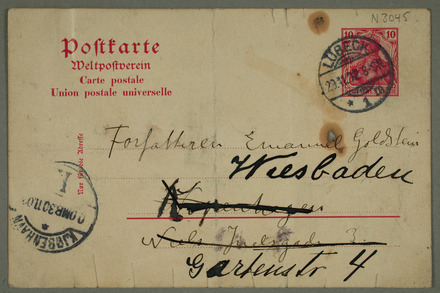 N 3045
Postkarte
Weltpostverein
Carte postale
Union postale universelle
10 10
LÜBECK
1
Nur für die Adresse
Forfatteren Emanuel Goldstein
Wiesbaden
Kopenhagen
Niels Juelsgade
Gartenstr 4
KJØBENHAVN
I